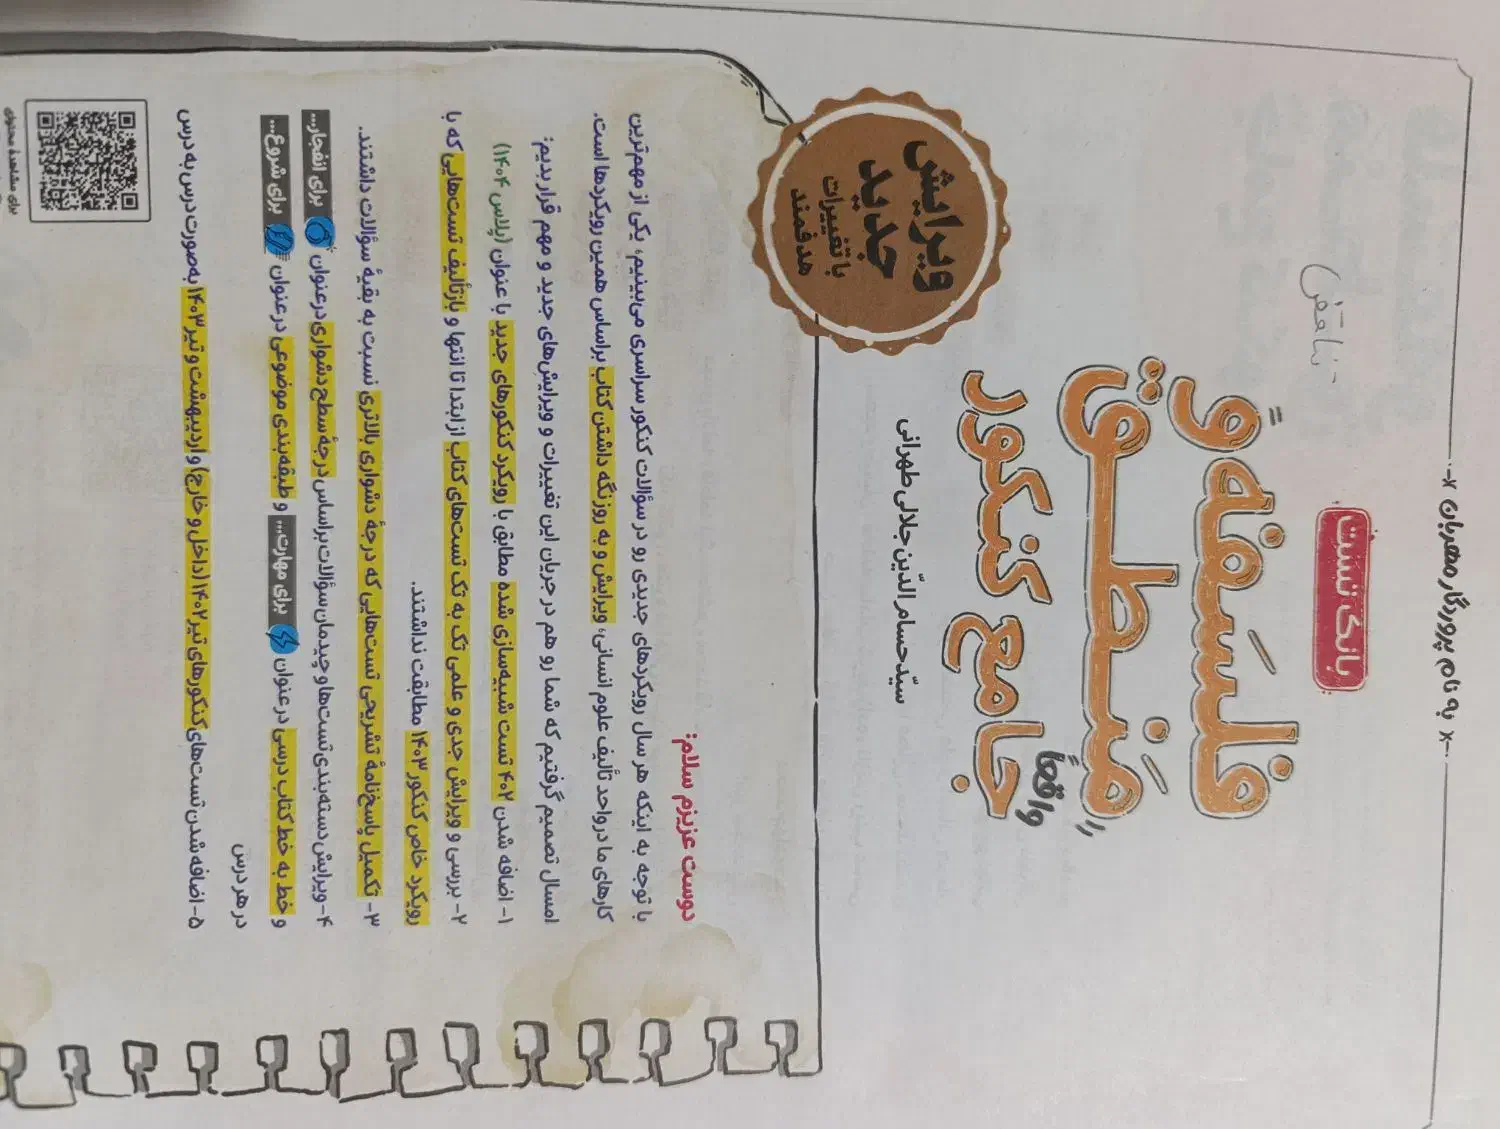 -x به نام پروردگار مهربان x-
تناقض
بانک تست
فلسفه و
منطق
واقعاً
جامع کنکور
سیّدحسام الدّین جلالی طهرانی
ویرایش
جدید
با تغییرات
هدفمند
دوست عزیزم سلام:
با توجه به اینکه هر سال رویکردهای جدیدی رو در سؤالات کنکور سراسری می‌بینیم، یکی از مهم‌ترین
کارهای ما در واحد تألیف علوم انسانی، ویرایش و به روز نگه داشتن کتاب براساس همین رویکردها است.
امسال تصمیم گرفتیم که شما رو هم در جریان این تغییرات و ویرایش‌های جدید و مهم قرار بدیم:
۱- اضافه شدن ۴۰۲ تست شبیه‌سازی شده مطابق با رویکرد کنکورهای جدید با عنوان (پلاس ۱۴۰۴)
۲- بررسی و ویرایش جدی و علمی تک به تک تست‌های کتاب از ابتدا تا انتها و بازتألیف تست‌هایی که با
رویکرد خاص کنکور ۱۴۰۳ مطابقت نداشتند.
۳- تکمیل پاسخ‌نامهٔ تشریحی تست‌هایی که درجهٔ دشواری بالاتری نسبت به بقیهٔ سؤالات داشتند.
۴- ویرایش دسته‌بندی تست‌ها و چیدمان سؤالات براساس درجهٔ سطح دشواری در عنوان برای انفجار...
و خط به خط کتاب درسی در عنوان برای مهارت... و طبقه‌بندی موضوعی در عنوان برای شروع...
در هر درس
۵- اضافه شدن تست‌های کنکورهای تیر ۱۴۰۲ (داخل و خارج) و اردیبهشت و تیر ۱۴۰۳ به صورت درس به درس
برای مشاهدهٔ محتوای